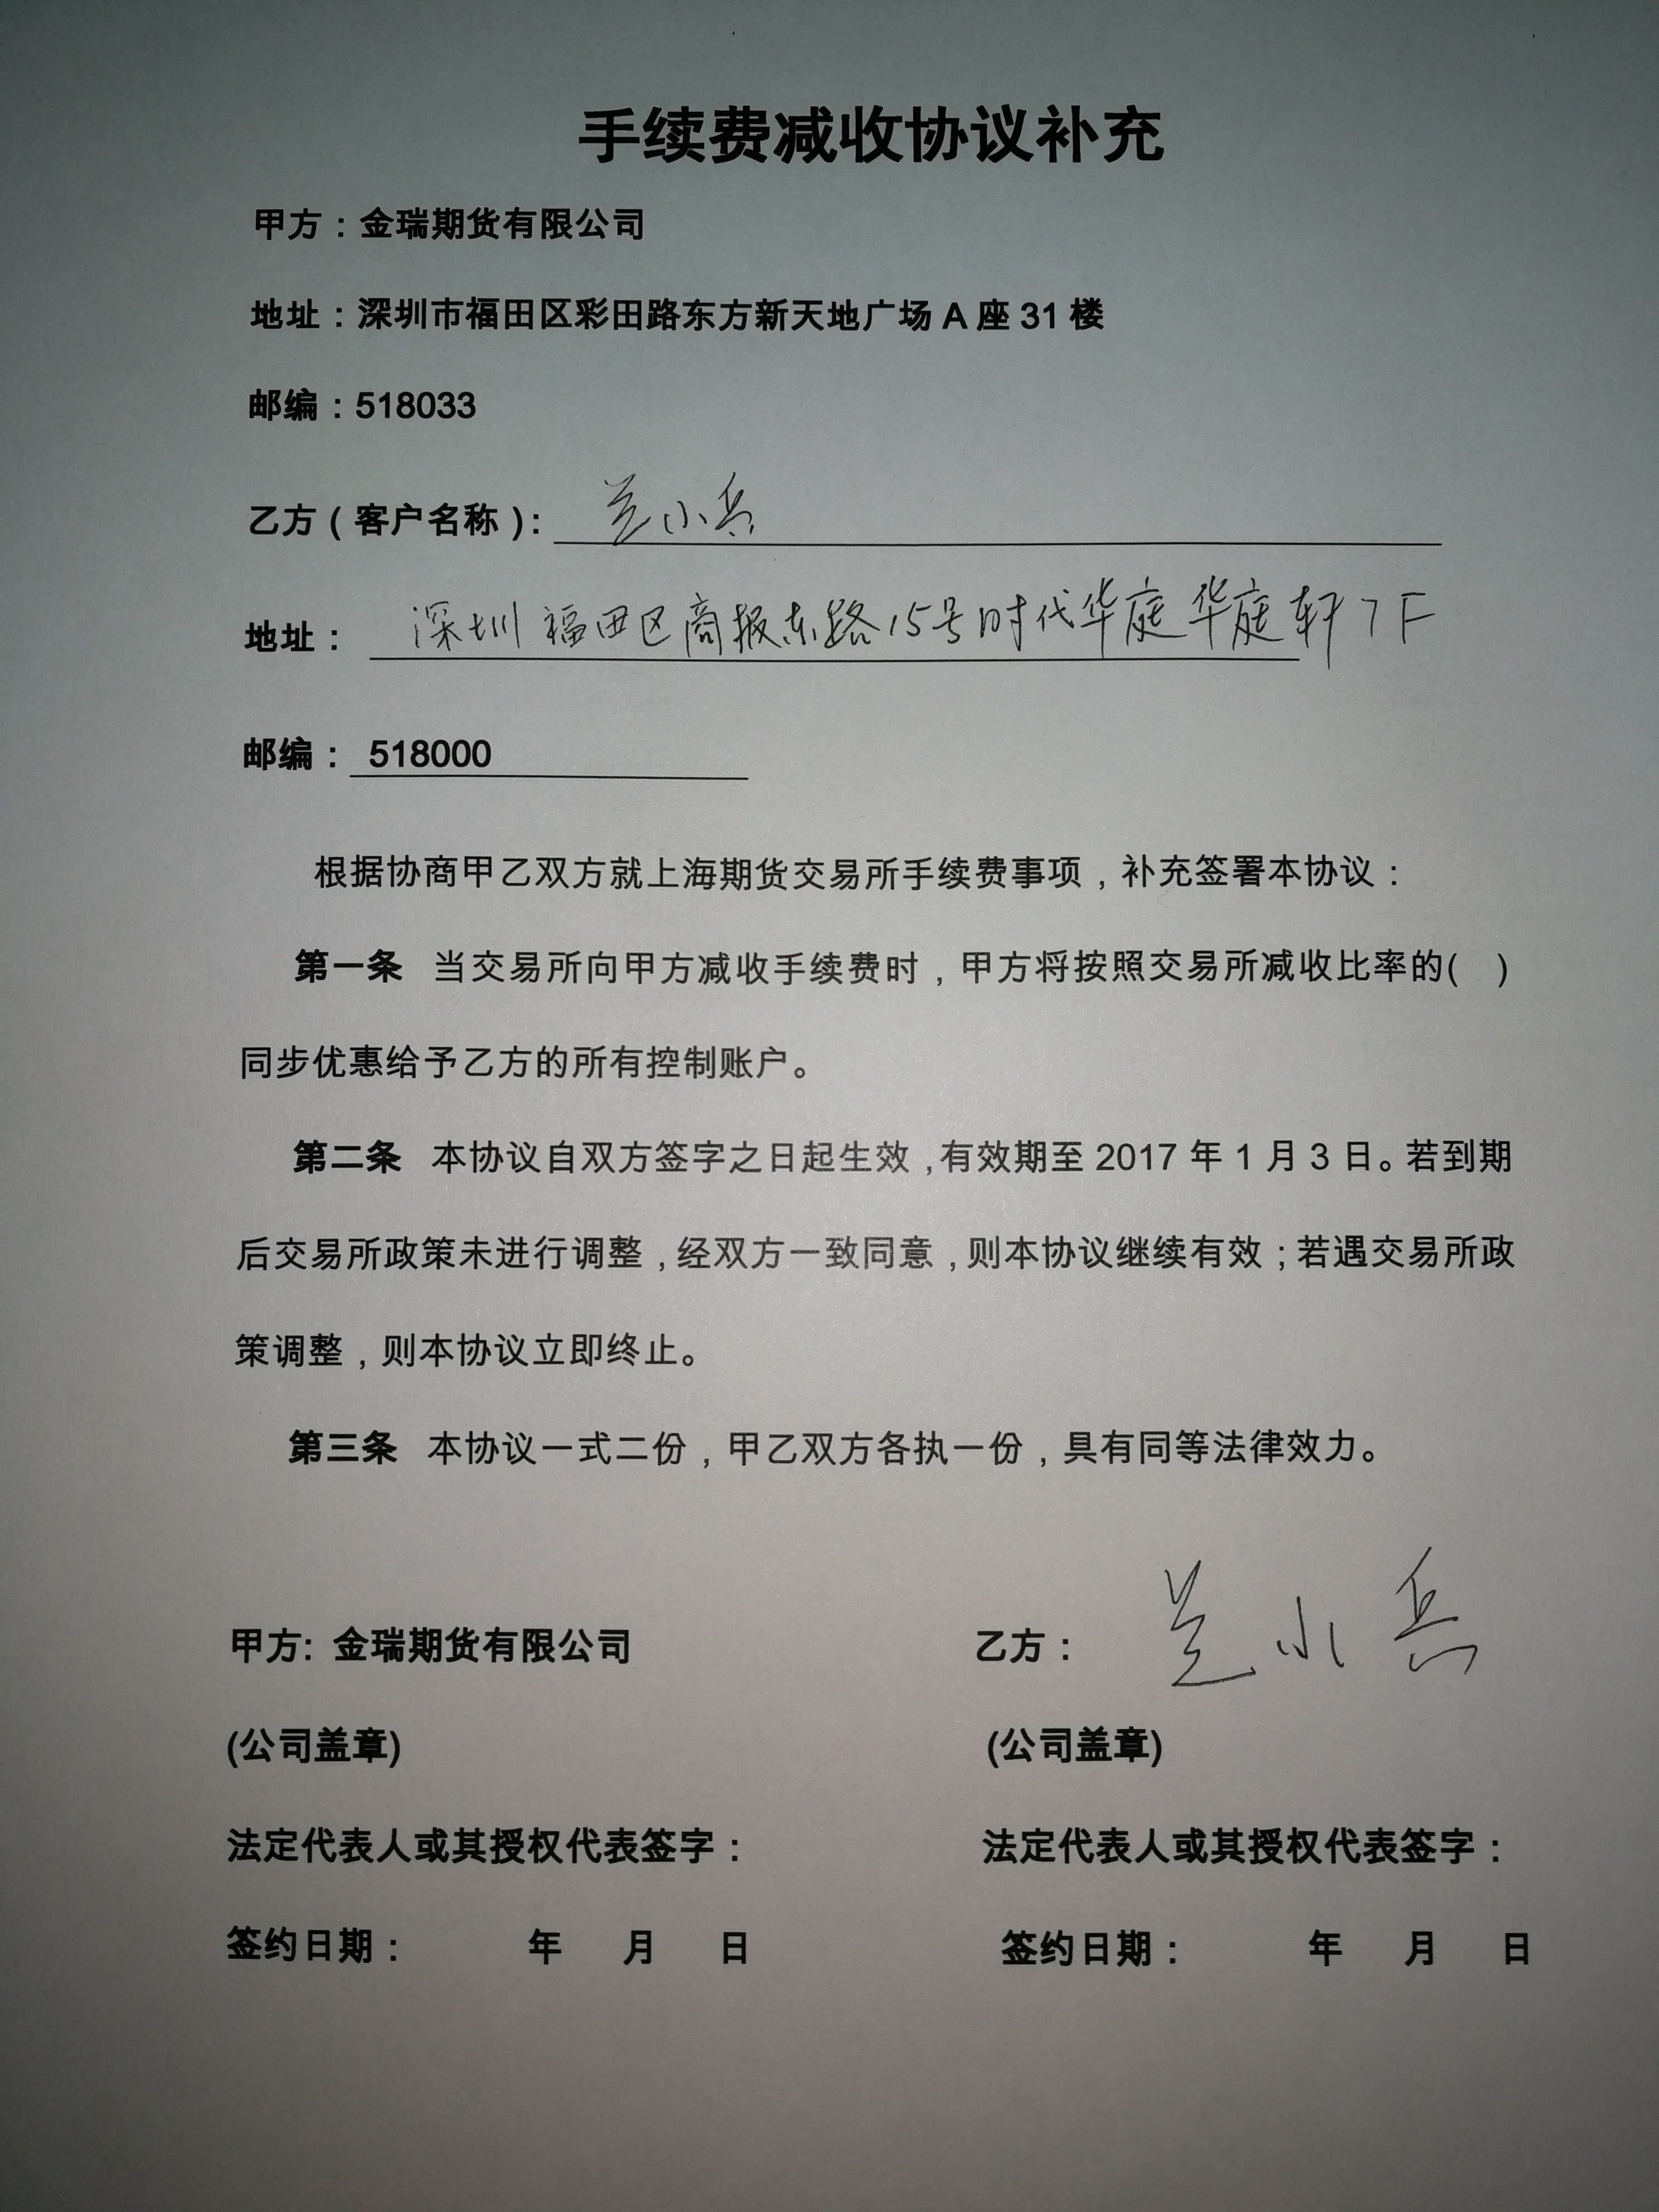 手续费减收协议补充
甲方：金瑞期货有限公司
地址：深圳市福田区彩田路东方新天地广场 A 座 31 楼
邮编：518033
乙方（客户名称）： 兰小兵
地址： 深圳福田区商报东路15号时代华庭华庭轩7F
邮编： 518000
根据协商甲乙双方就上海期货交易所手续费事项，补充签署本协议：
第一条 当交易所向甲方减收手续费时，甲方将按照交易所减收比率的( )
同步优惠给予乙方的所有控制账户。
第二条 本协议自双方签字之日起生效，有效期至 2017 年 1 月 3 日。若到期
后交易所政策未进行调整，经双方一致同意，则本协议继续有效；若遇交易所政
策调整，则本协议立即终止。
第三条 本协议一式二份，甲乙双方各执一份，具有同等法律效力。
甲方: 金瑞期货有限公司 乙方： 兰小兵
(公司盖章) (公司盖章)
法定代表人或其授权代表签字： 法定代表人或其授权代表签字：
签约日期： 年 月 日 签约日期： 年 月 日